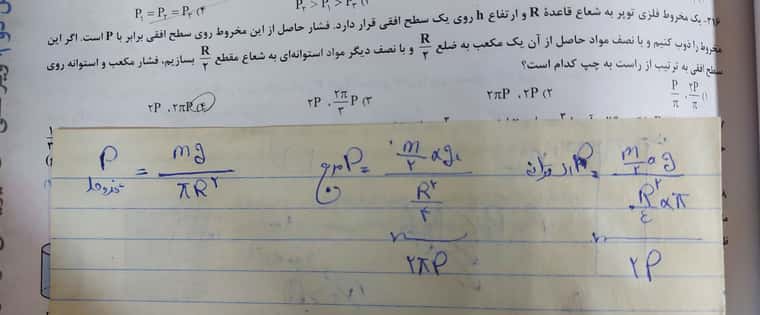 P₁ = P₂ = P₃ (۴
P₂ > P₁ > P₃ (
۲۹۶- یک مخروط فلزی توپر به شعاع قاعدهٔ R و ارتفاع h روی یک سطح افقی قرار دارد. فشار حاصل از این مخروط روی سطح افقی برابر با P است. اگر این
مخروط را ذوب کنیم و با نصف مواد حاصل از آن یک مکعب به ضلع R/۲ و با نصف دیگر مواد استوانه‌ای به شعاع مقطع R/۲ بسازیم، فشار مکعب و استوانه روی
سطح افقی به ترتیب از راست به چپ کدام است؟
۱) ۲P/π ، P/π
۲) ۲P ، ۲πP
۳) P ۲π/۳ ، ۲P
۴) ۲πP ، ۲P
P مخروط = mg / πR²
P مربع = m/۲ × g / R²/۴
۲πP
P استوانه = m/۲ × g / R²/۴ × π
۲P